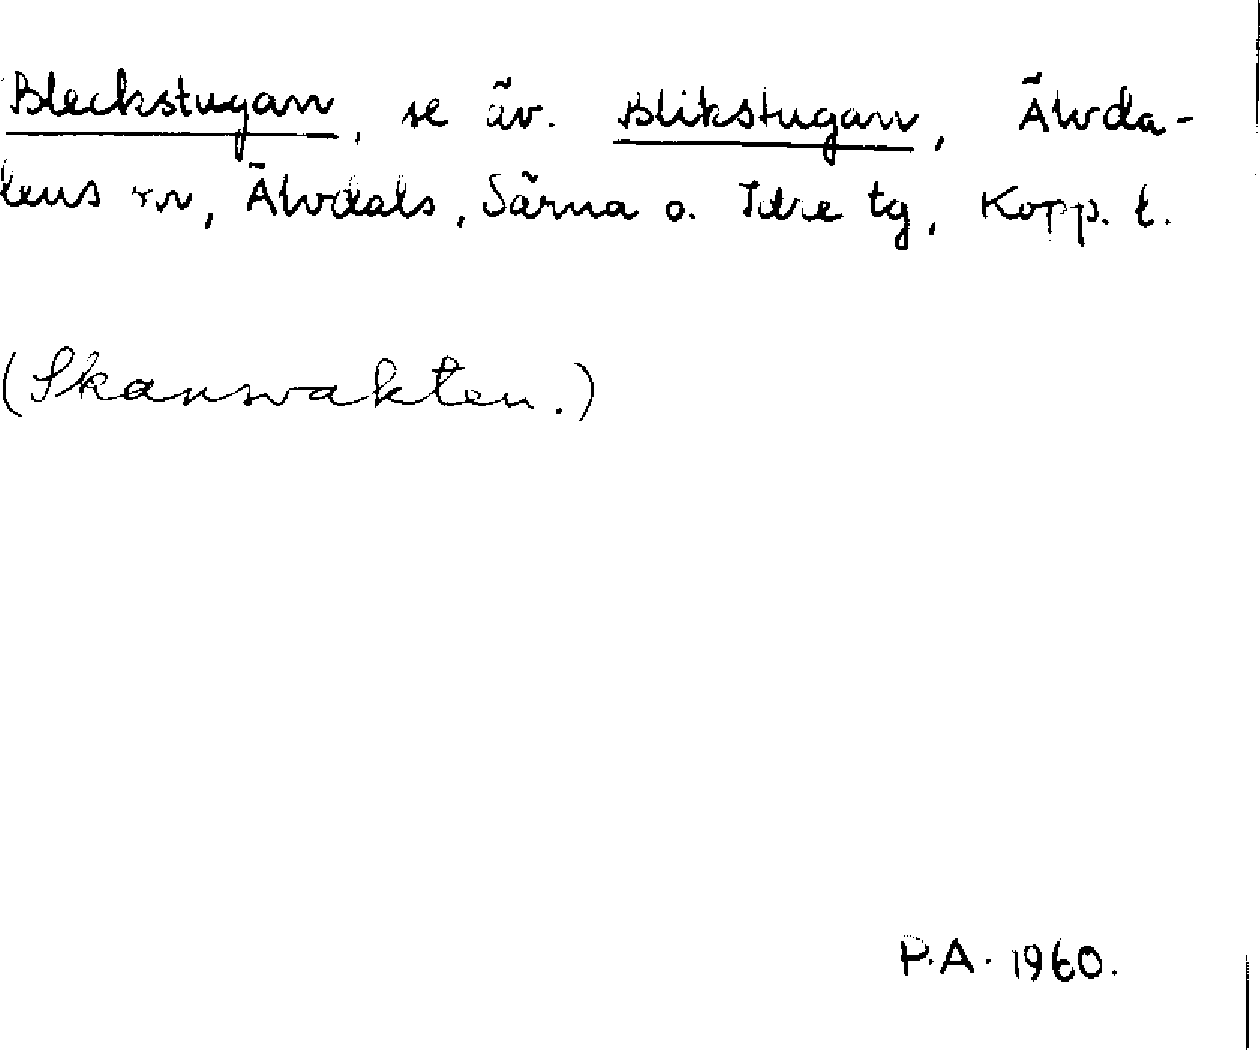 Bleckstugan, se äv. Blikstugan, Älvda-
lens sn, Älvdals, Särna o. Idre tg, Kopp. l.
(Skansvakten.)
P.A. 1960.